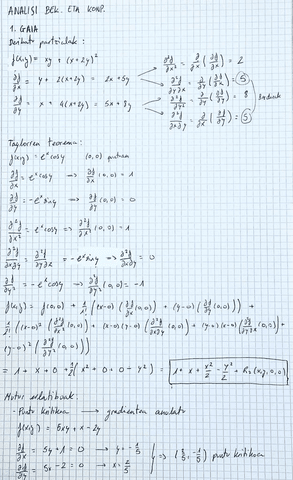 ANALISI BEK. ETA KONP.
1. GAIA
Deribatu partzialak:
f(x,y) = xy + (x+2y)²
∂f/∂x = y + 2(x+2y) = 2x + 5y
∂²f/∂x² = ∂/∂x (∂f/∂x) = 2
∂²f/∂y∂x = ∂/∂y (∂f/∂x) = 5
∂f/∂y = x + 4(x+2y) = 5x + 8y
∂²f/∂y² = ∂/∂y (∂f/∂y) = 8
∂²f/∂x∂y = ∂/∂x (∂f/∂y) = 5
Taylorren teorema:
f(x,y) = eˣ cos y (0,0) puntuan
∂f/∂x = eˣ cos y → ∂f/∂x (0,0) = 1
∂f/∂y = -eˣ sin y → ∂f/∂y (0,0) = 0
∂²f/∂x² = eˣ cos y → ∂²f/∂x² (0,0) = 1
∂²f/∂x∂y = ∂²f/∂y∂x = -eˣ sin y → ∂²f/∂x∂y = 0
∂²f/∂y² = -eˣ cos y → ∂²f/∂y² (0,0) = -1
f(x,y) = f(0,0) + 1/1! ((x-0) (∂f/∂x (0,0)) + (y-0) (∂f/∂y (0,0))) +
1/2! ((x-0)² (∂²f/∂x² (0,0)) + (x-0)(y-0) (∂²f/∂x∂y (0,0)) + (y-0)(x-0) (∂²f/∂y∂x (0,0)) +
(y-0)² (∂²f/∂y² (0,0)))
= 1 + x + 0 + 1/2 (x² + 0 + 0 - y²) = 1 + x + x²/2 - y²/2 + R₂(x,y,0,0)
Mutur erlatiboak:
- Puntu kritikoa → gradientea anulatu
f(x,y) = 5xy + x - 2y
∂f/∂x = 5y + 1 = 0 → y = -1/5
∂f/∂y = 5x - 2 = 0 → x = 2/5
⇒ (2/5, -1/5) puntu kritikoa